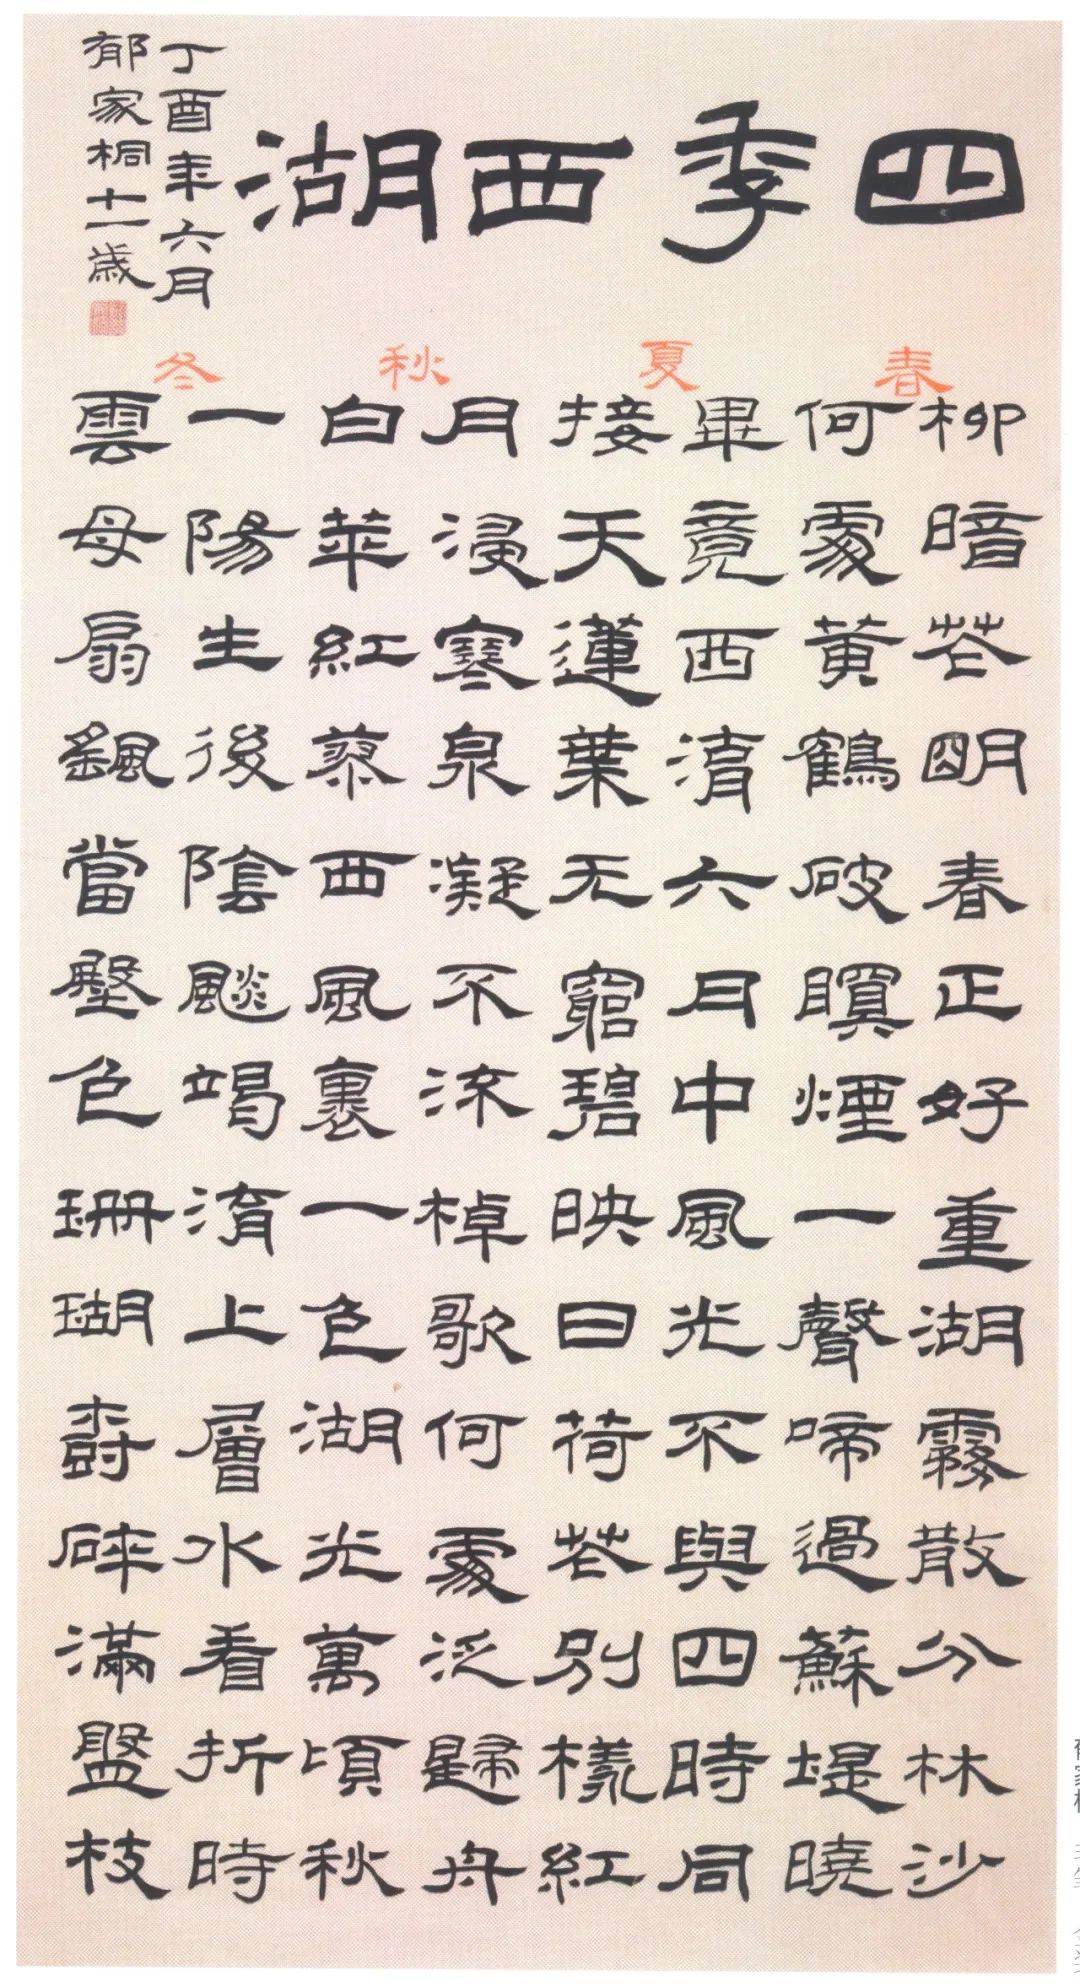 四季西湖
春
柳暗花明春正好重湖霧散分林沙
何處黃鶴破暝煙一聲啼過蘇堤曉
夏
畢竟西湖六月中風光不與四時同
接天蓮葉无窮碧映日荷花別樣紅
秋
月浸寒泉凝不流棹歌何處泛歸舟
白苹紅蓼西風裏一色湖光萬頃秋
冬
一陽生後陰飈竭湖上層水看折時
雲母扇颻當壂色珊瑚樹碎滿盤枝
丁酉年六月
郁家桐十一歲